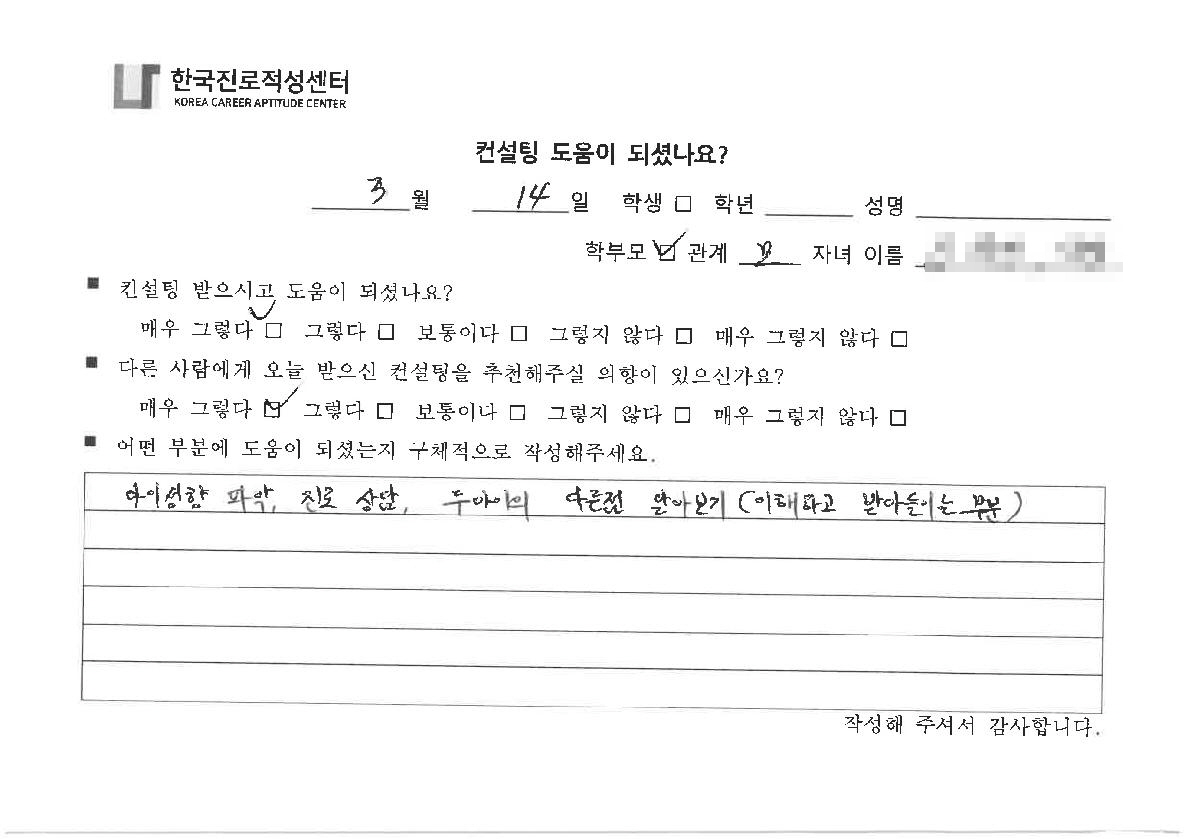 한국진로적성센터
KOREA CAREER APTITUDE CENTER
컨설팅 도움이 되셨나요?
3 월 14 일 학생 □ 학년 성명
학부모 ☑ 관계 모 자녀 이름
■ 컨설팅 받으시고 도움이 되셨나요?
매우 그렇다 ☑ 그렇다 □ 보통이다 □ 그렇지 않다 □ 매우 그렇지 않다 □
■ 다른 사람에게 오늘 받으신 컨설팅을 추천해주실 의향이 있으신가요?
매우 그렇다 ☑ 그렇다 □ 보통이다 □ 그렇지 않다 □ 매우 그렇지 않다 □
■ 어떤 부분에 도움이 되셨는지 구체적으로 작성해주세요.
아이성향 파악, 진로 상담, 두아이의 다른점 알아보기 (이해하고 받아들이는 부분)
작성해 주셔서 감사합니다.